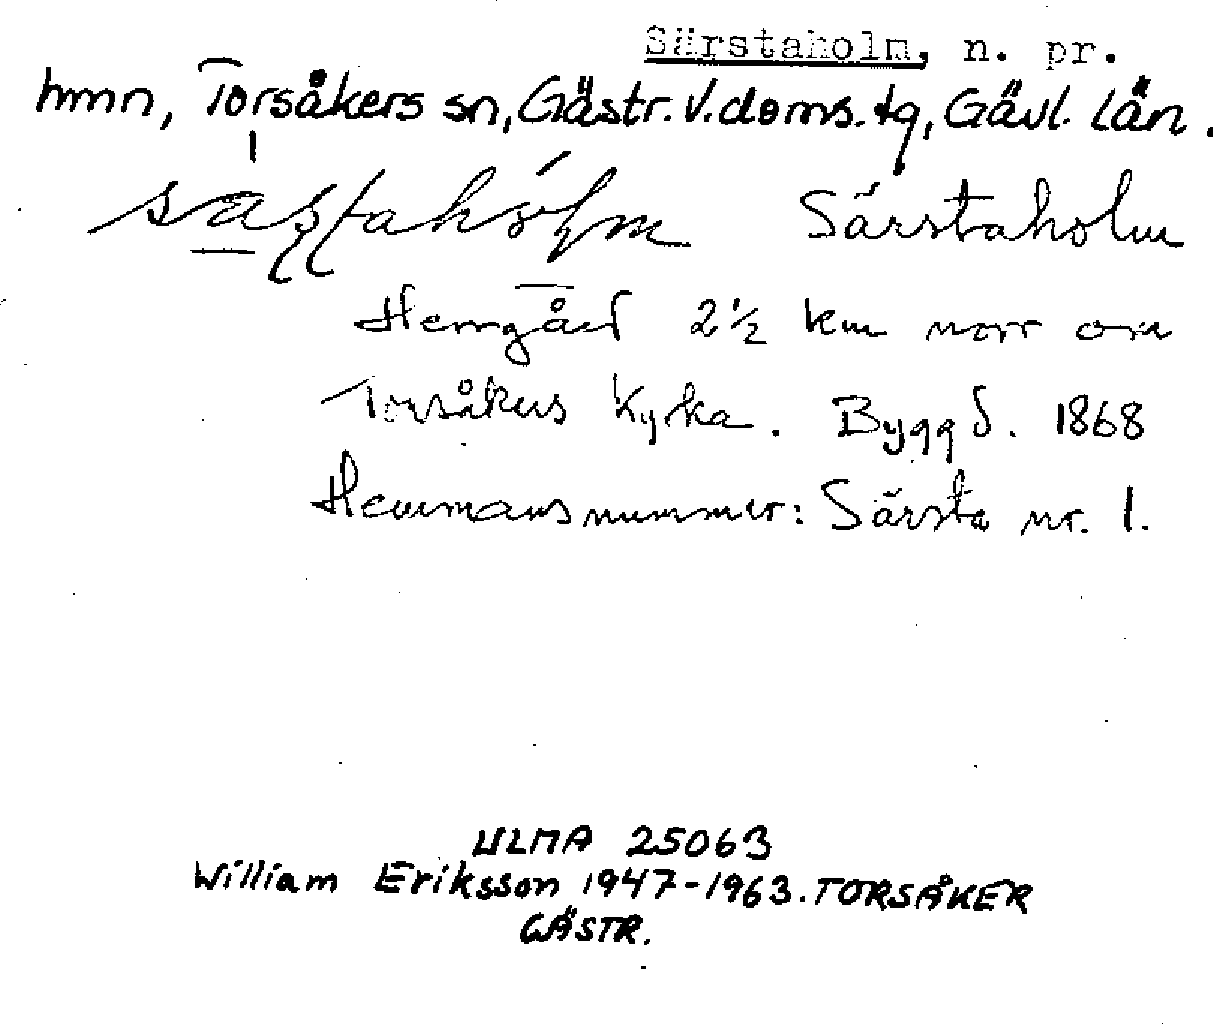 Särstaholm, n. pr.
hmn, Torsåkers sn, Gästr. V. doms. tg, Gävl. län.
Särstaholm
Herrgård 2 1/2 km norr om
Torsåkers Kyrka. Byggd. 1868
Hemmansnummer: Särsta nr. 1.
ULMA 25063
William Eriksson 1947-1963. TORSÅKER
GÄSTR.